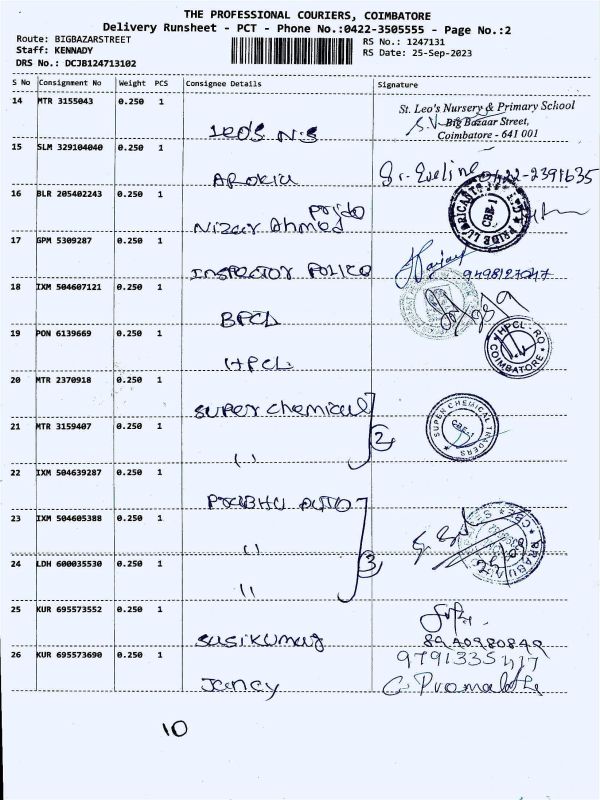 THE PROFESSIONAL COURIERS, COIMBATORE
Delivery Runsheet - PCT - Phone No.:0422-3505555 - Page No.:2
Route: BIGBAZARSTREET
RS No.: 1247131
Staff: KENNADY
RS Date: 25-Sep-2023
DRS No.: DCJB124713102
S No Consignment No Weight PCS Consignee Details Signature
14 MTR 3155043 0.250 1
St. Leo's Nursery & Primary School
Big Bazaar Street,
Coimbatore - 641 001
LEO'S N.S
15 SLM 329104040 0.250 1
Sr. Eveline 0422-2391635
AROKIA
16 BLR 205402243 0.250 1
Pride
Nizar Ahmed
PRIDE LUBRICANTS
CBE-1
17 GPM 5309287 0.250 1
INSPECTOR POLICE
18 IXM 504607121 0.250 1
BPCL
19 PON 6139669 0.250 1
HPCL
HPCL-RO
COIMBATORE
20 MTR 2370918 0.250 1
Super Chemical
21 MTR 3159407 0.250 1
2
SUPER CHEMICAL TRADERS
CBE-1
"
22 IXM 504639287 0.250 1
PRABHU AUTO
23 IXM 504605388 0.250 1
"
24 LDH 600035530 0.250 1
3
"
25 KUR 695573552 0.250 1
Susikumar
8940980849
26 KUR 695573690 0.250 1
Jancy
10